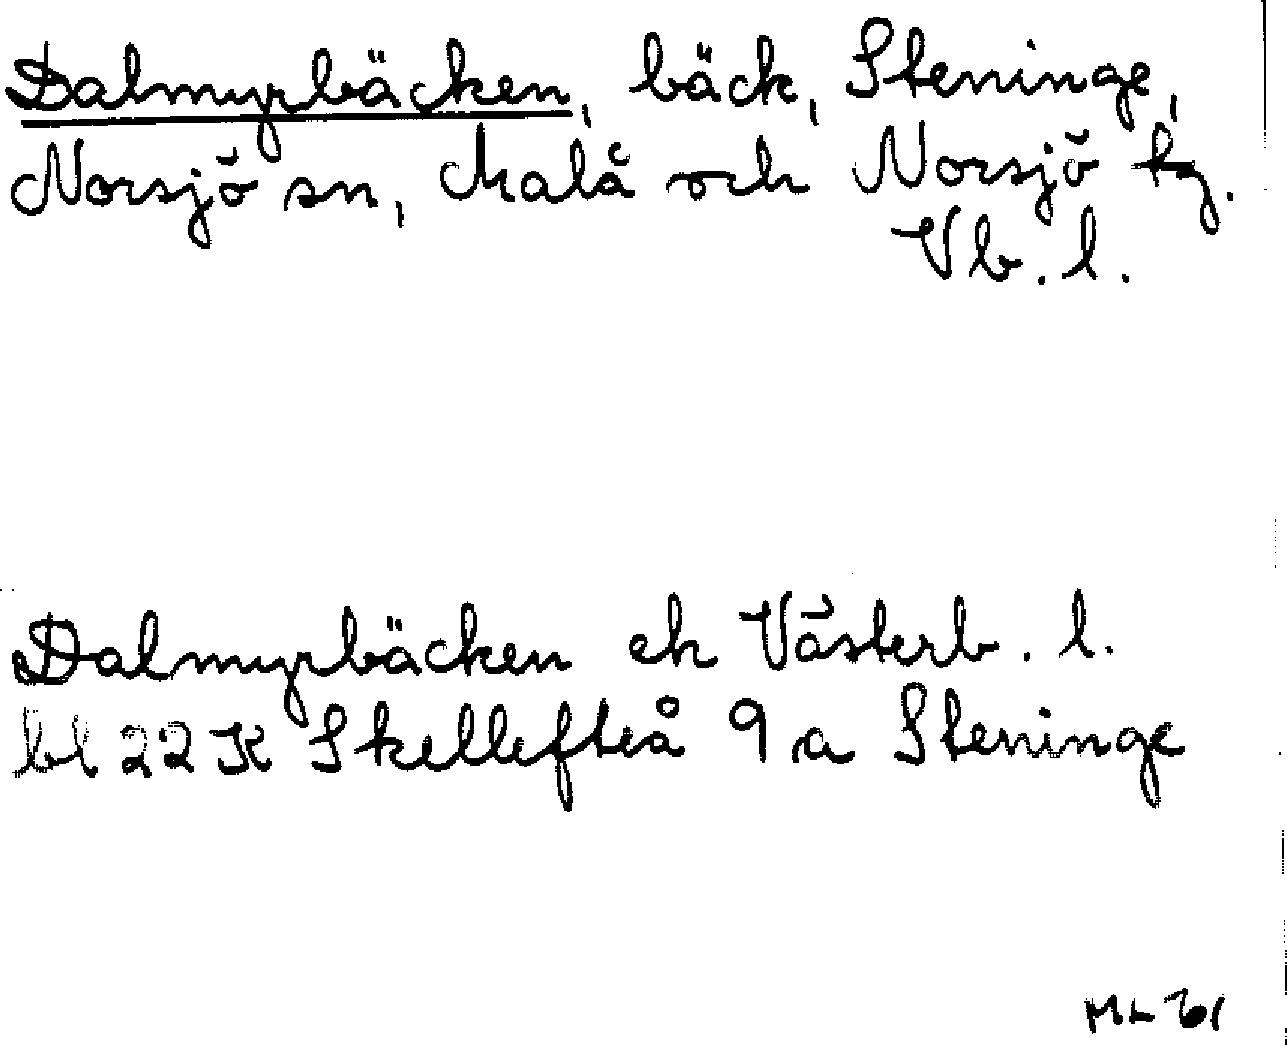 Dalmyrbäcken, bäck, Steninge,
Norsjö sn, Malå och Norsjö tg.
Vb. l.
Dalmyrbäcken ek Västerb. l.
bl 22 K Skellefteå 9 a Steninge